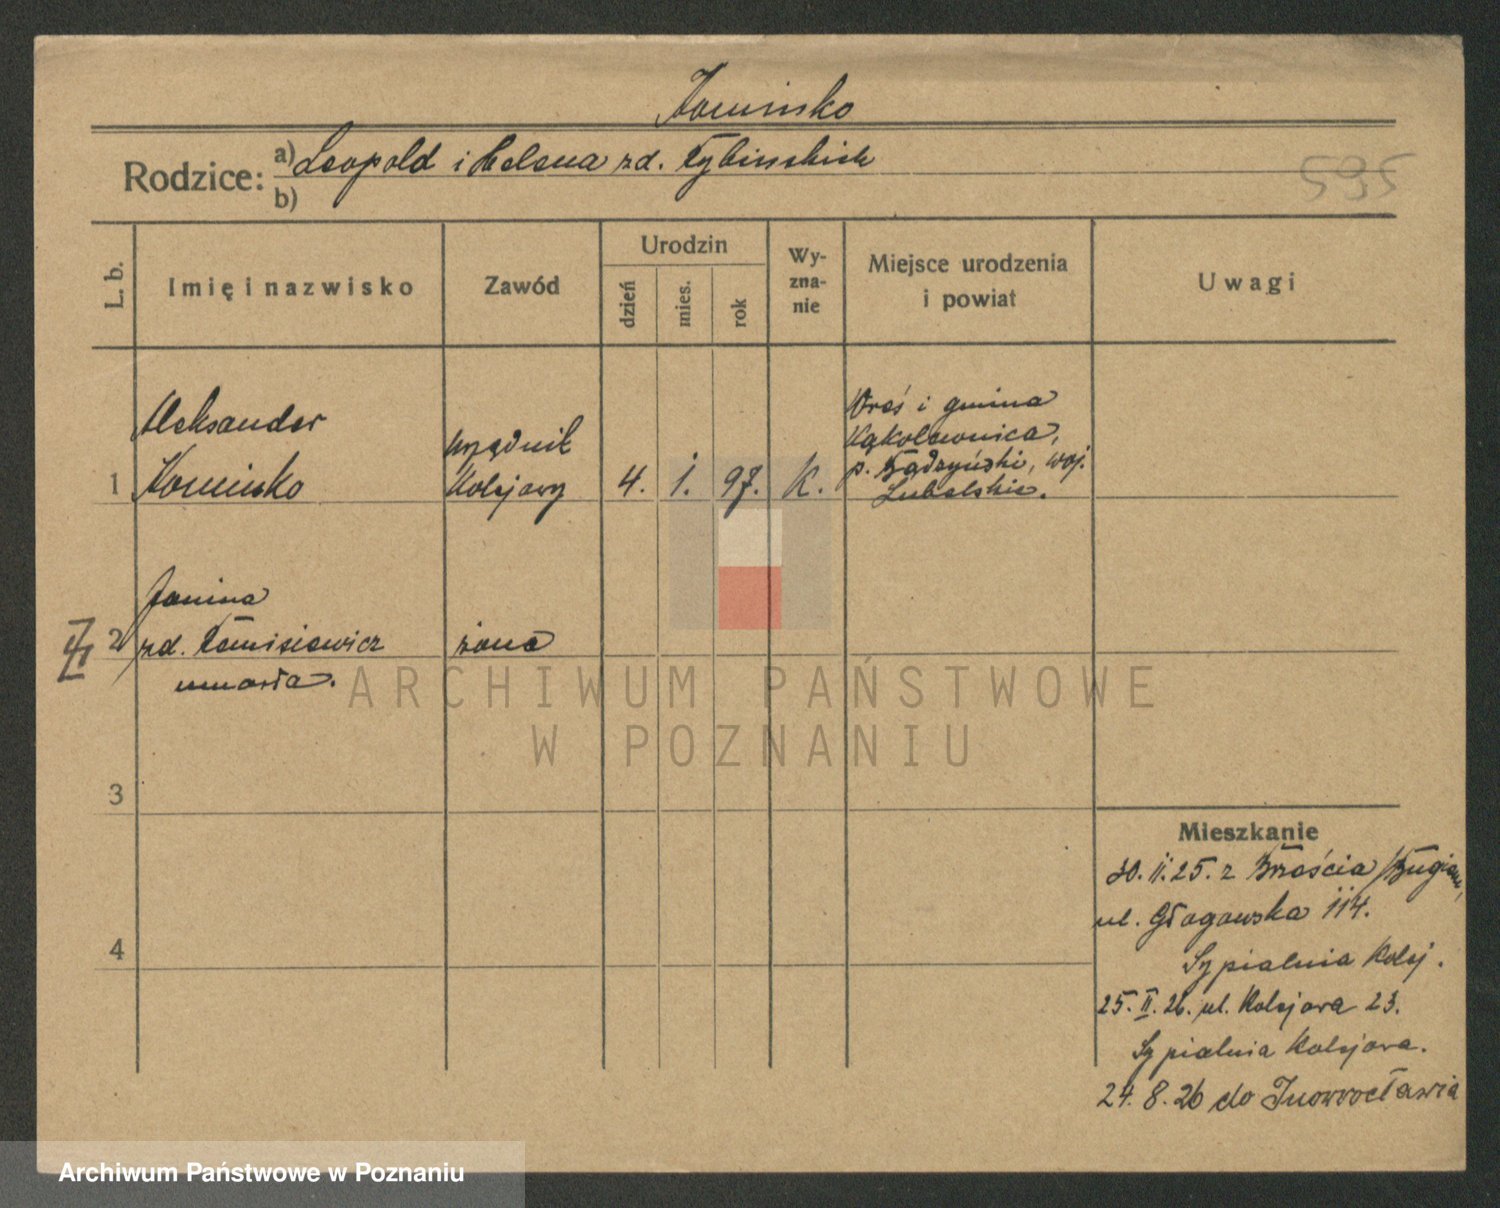 Kominko
Rodzice: a) Leopold i Helena zd. Rybinskich
b)
595
L. b.
Imię i nazwisko
Zawód
Urodzin
dzień
mies.
rok
Wy-
zna-
nie
Miejsce urodzenia
i powiat
Uwagi
1
Aleksander
Kominko
urzędnik
kolejowy
4. 1. 97. K.
Wieś i gmina
Kąkolewnica,
p. Radzyński, woj.
Lubelskie.
2
Janina
zd.
umarła.
żona
3
4
Mieszkanie
30. II. 25. z Brześcia /Bugiem,
ul. Głogowska 114.
Sypialnia Kolej.
25. II. 26. ul. Kolejowa 23.
Sypialnia Kolejowa.
24. 8. 26 do Inowrocławia
ARCHIWUM PAŃSTWOWE
W POZNANIU
Archiwum Państwowe w Poznaniu